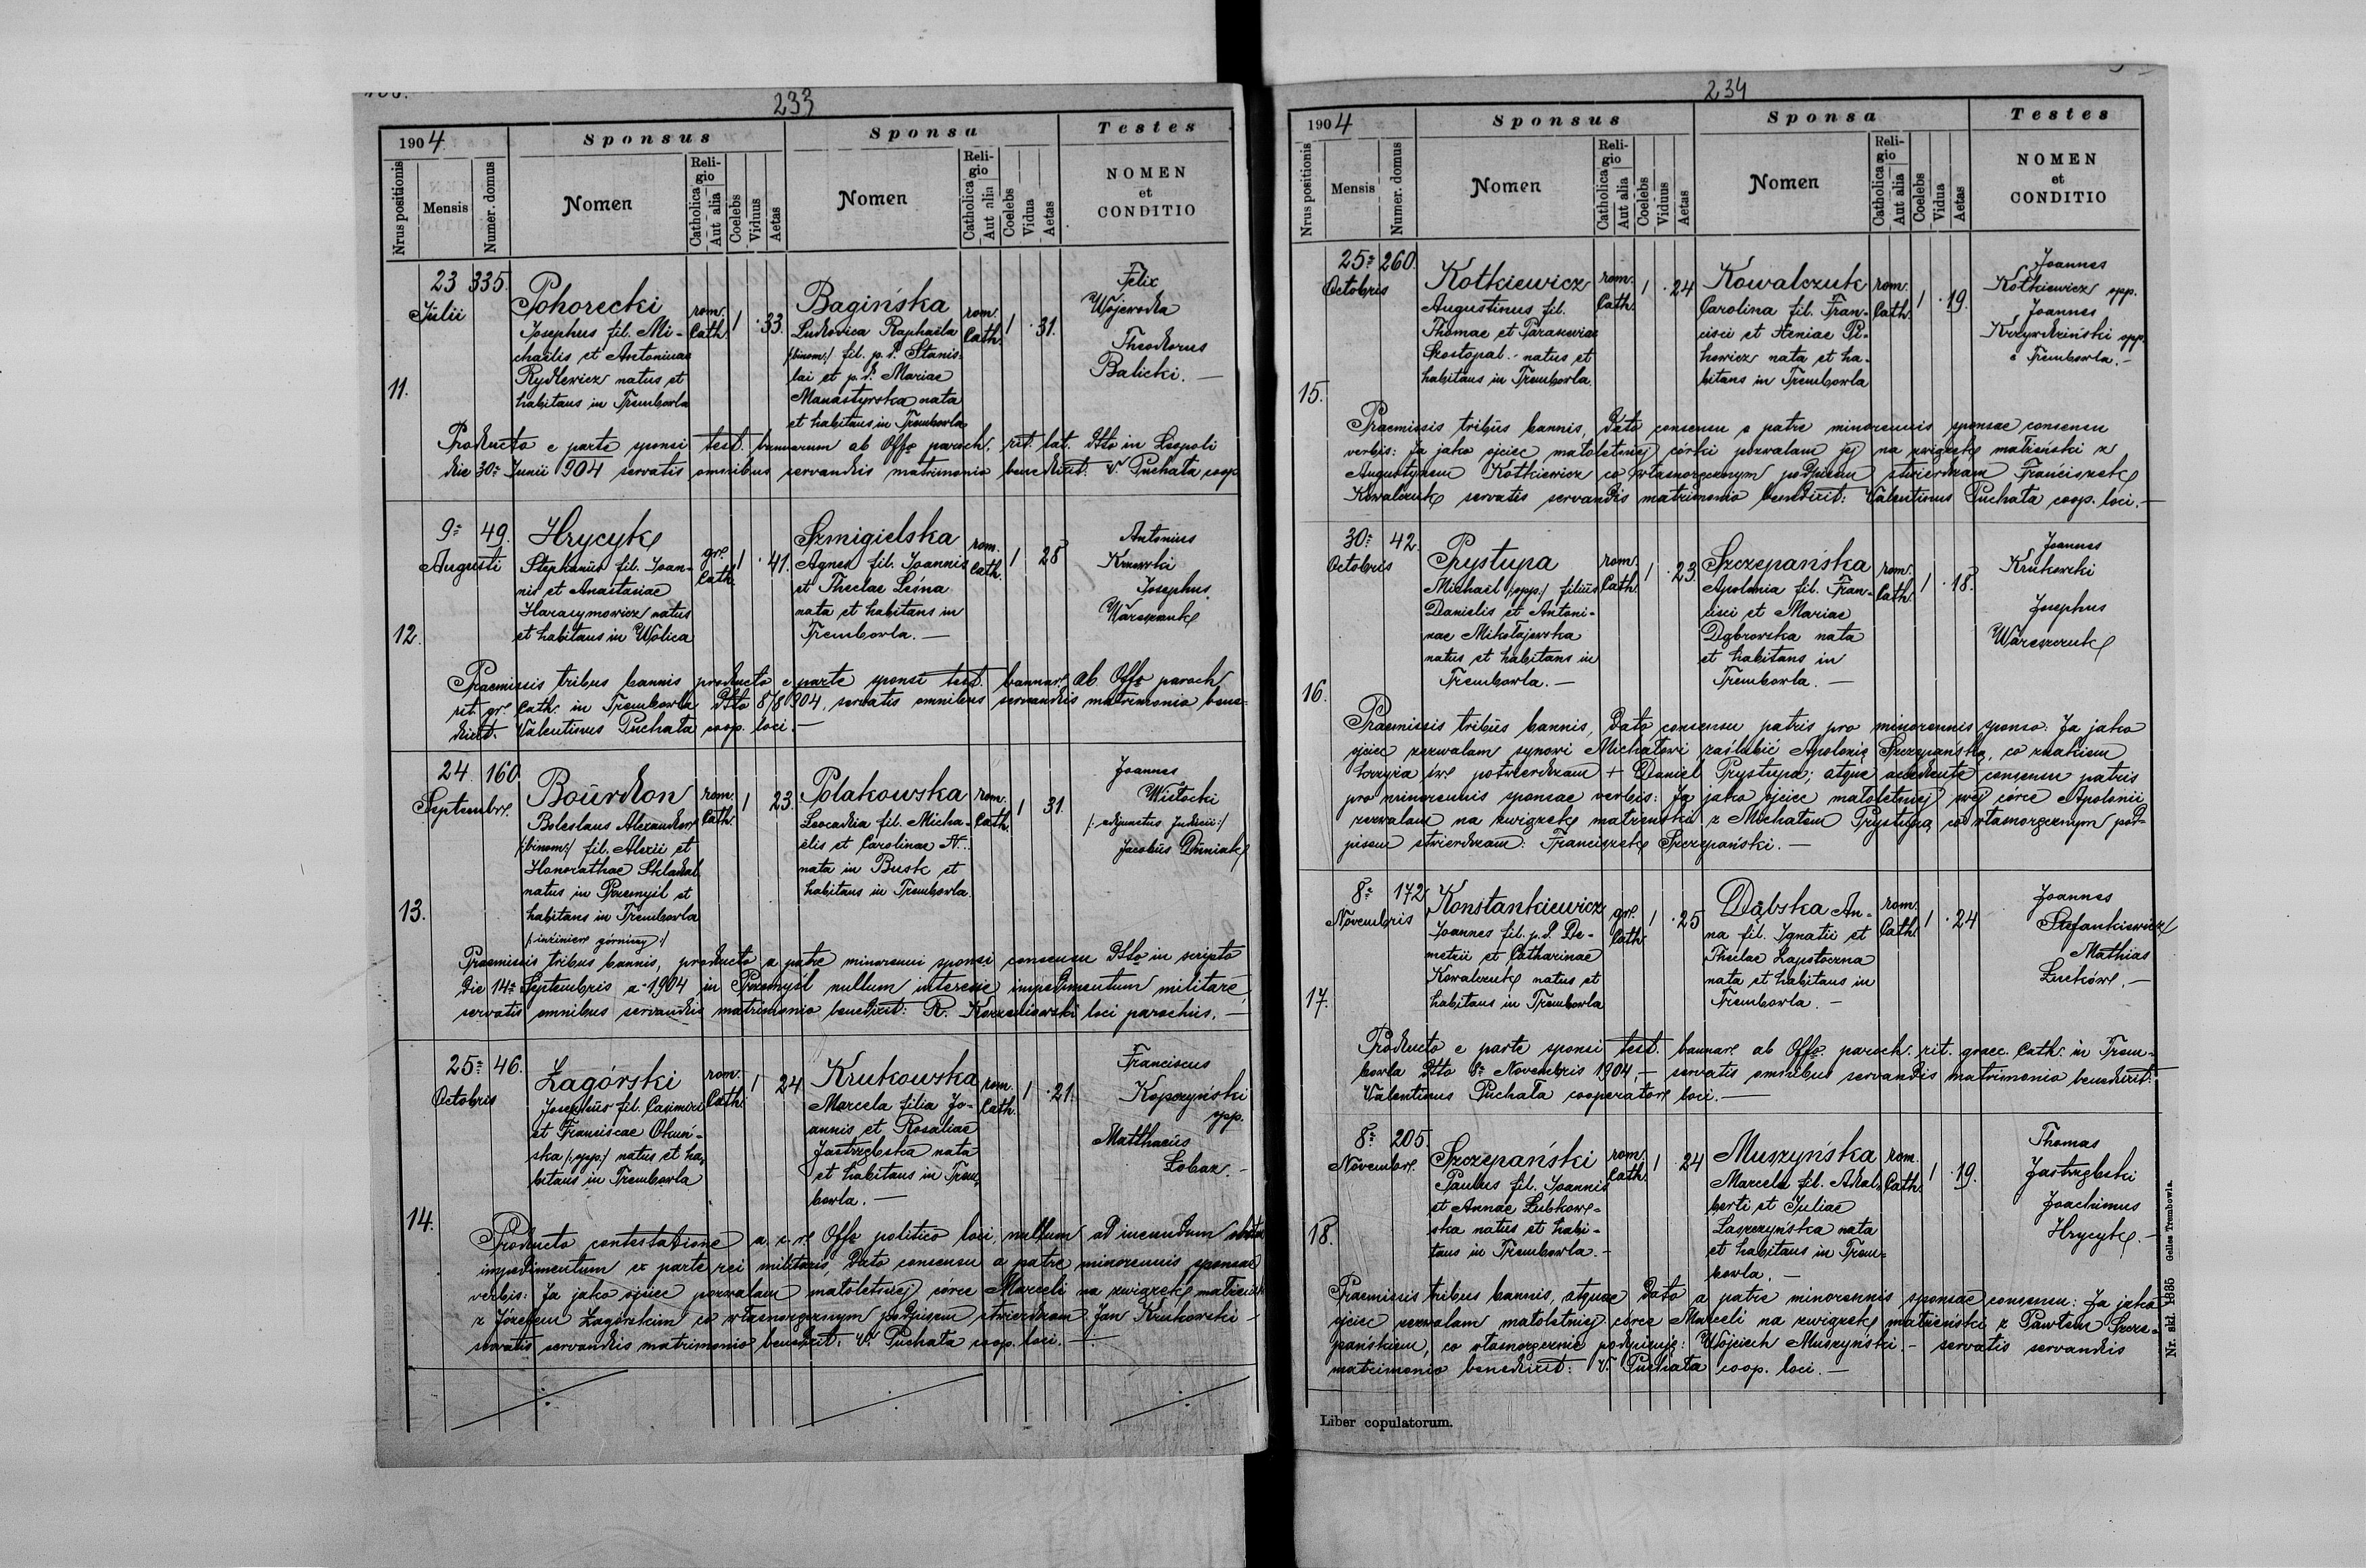 233
1904
Sponsus
Sponsa
Testes
Nrus positionis
Mensis
Numer. domus
Nomen
Religio
Catholica
Aut alia
Coelebs
Viduus
Aetas
Nomen
Religio
Catholica
Aut alia
Coelebs
Vidua
Aetas
NOMEN
et
CONDITIO
11.
23 Julii
335.
Pohorecki
Josephus fil. Mi-
chaëlis et Antoninae
Rydlewicz natus et
habitans in Trembowla
rom. Cath.
1
33.
Bagińska
Ludovica Raphaëla
/:binom:/ fil. p. d. Stanis-
lai et p. d. Mariae
Manastyrska nata
et habitans in Trembowla
rom. Cath.
1
31.
Felix
Wojewodka
Theodorus
Balicki. —
Producto e parte sponsi test. bannorum ab Offo paroch. rit. lat. ddto in Leopoli
die 30. Junii 904 servatis omnibus servandis matrimonio benedixit: V. Puchata coop.
12.
9. Augusti
49.
Hrycyk
Stephanus fil. Joan-
nis et Anastasiae
Harasymowicz natus
et habitans in Wolica
gr. Cath.
1
41.
Szmigielska
Agnes fil. Joannis
et Theclae Leśna
nata et habitans in
Trembowla. —
rom. Cath.
1
28
Antonius
Josephus
Praemissis tribus bannis producto e parte sponsi test. bannar. ab Offo paroch.
rit. gr. Cath. in Trembowla ddto 8/8 904, servatis omnibus servandis matrimonio bene-
dixit. Valentinus Puchata coop. loci. —
13.
24. Septembr.
160
Bourdon
Boleslaus Alexander
/:binom:/ fil. Alexii et
Honorathae
natus in Przemyśl et
habitans in Trembowla
/:inżinier górniczy:/
rom. Cath.
1
23.
Polakowska
Leocadia fil. Micha-
ëlis et Carolinae N..
nata in Busk et
habitans in Trembowla.
rom. Cath.
1
31.
Joannes
Wistocki
/: adjunctus Judicii:/
Jacobus Duniak
Praemissis tribus bannis, producto a patre minorenni sponsi consensu ddto in scripto
die 14. Septembris a. 1904 in Przemyśl nullum interesse impedimentum militare,
servatis omnibus servandis matrimonio benedixit: R. loci parochus. —
14.
25. Octobris
46.
Zagórski
Josephus fil. Casimiri
et Franciscae Okuń-
ska /:opp:/ natus et ha-
bitans in Trembowla
rom. Cath.
1
24
Krukowska
Marcela filia Jo-
annis et Rosaliae
Jastrzębska nata
et habitans in Trem-
bowla. —
rom. Cath.
1
21.
Franciscus
Kopczyński
opp.
Matthaeus
Łobaz. —
Producto contestatione a c. r. Offo politico loci, nullum ad ineundum
impedimentum ex parte rei militaris, dato consensu a patre minorennis sponsae
verbis: Ja jako ojciec pozwalam małoletniej córce Marceli na związek małżeński
z Józefem Zagórskim co własnoręcznym podpisem stwierdzam Jan Krukowski -
servatis servandis matrimonio benedixit. V. Puchata coop. loci. —
234
1904
Sponsus
Sponsa
Testes
Nrus positionis
Mensis
Numer. domus
Nomen
Religio
Catholica
Aut alia
Coelebs
Viduus
Aetas
Nomen
Religio
Catholica
Aut alia
Coelebs
Vidua
Aetas
NOMEN
et
CONDITIO
15.
25. Octobris
260.
Kotkiewicz
Augustinus fil.
Thomae et Parasceviae
Szostopal. natus et
habitans in Trembowla.
rom. Cath.
1
24
Kowalczuk
Carolina fil. Fran-
cisci et Xeniae Pi-
howicz nata et ha-
bitans in Trembowla
rom. Cath.
1
19.
Joannes
Kotkiewicz opp.
Joannes
Krzywdziński opp.
e Trembowla. —
Praemissis tribus bannis, dato consensu a patre minorennis sponsae consensu
verbis: Ja jako ojciec małoletniej córki pozwalam jej na związek małżeński z
Augustynem Kotkiewicz co własnoręcznym podpisem stwierdzam Franciszek
Kowalczuk servatis servandis matrimonio benedixit: Valentinus Puchata coop. loci. —
16.
30. Octobris
42.
Prystupa
Michaël /:opp:/ filius
Danielis et Antoni-
nae Mikołajewska
natus et habitans in
Trembowla. —
rom. Cath.
1
23.
Szczepańska
Apolonia fil. Fran-
cisci et Mariae
Dąbrowska nata
et habitans in
Trembowla. —
rom. Cath.
1
18.
Joannes
Krukowski
Josephus
Wareszczuk
Praemissis tribus bannis, dato consensu patris pro minorennis sponso: Ja jako
ojciec zezwalam synowi Michałowi zaślubić Apolonię Szczepańską, co znakiem
krzyża św. potwierdzam + Daniel Prystupa; atque accedente consensu patris
pro minorennis sponsae verbis: Ja jako ojciec małoletniej mej córce Apolonii
zezwalam na związek małżeński z Michałem Prystupą co własnoręcznym pod-
pisem stwierdzam: Franciszek Szczepański. —
17.
8. Novembris
172
Konstankiewicz
Joannes fil. p. d. De-
metrii et Catharinae
Kowalczuk natus et
habitans in Trembowla
gr. Cath.
1
25
Dąbska An-
na fil. Ignatii et
Theclae Zapotoczna
nata et habitans in
Trembowla. —
rom. Cath.
1
24
Joannes
Stefankiewicz
Mathias
Łuckow. —
Producto e parte sponsi test. bannar. ab Offo. paroch. rit. graec. Cath. in Trem-
bowla ddto 8. Novembris 1904, — servatis omnibus servandis matrimonio benedixit:
Valentinus Puchata cooperator loci. —
18.
8. Novembr.
205.
Szczepański
Paulus fil. Joannis
et Annae Lubkow-
ska natus et habi-
tans in Trembowla. -
rom. Cath.
1
24
Muszyńska
Marcela fil. Adal-
berti et Juliae
Laszczyńska nata
et habitans in Trem-
bowla. —
rom. Cath.
1
19.
Thomas
Jastrzębski
Joachimus
Hrycyk. —
Praemissis tribus bannis, atque dato a patre minorennis sponsae consensu: Ja jako
ojciec zezwalam małoletniej córce Marceli na związek małżeński z Pawłem Szcze-
pańskim, co własnoręcznie podpisuję: Wojciech Muszyński. — servatis servandis
matrimonio benedixit: V. Puchata coop. loci. —
Liber copulatorum.
Nr. skł. 1385 Gelles Trembowla.